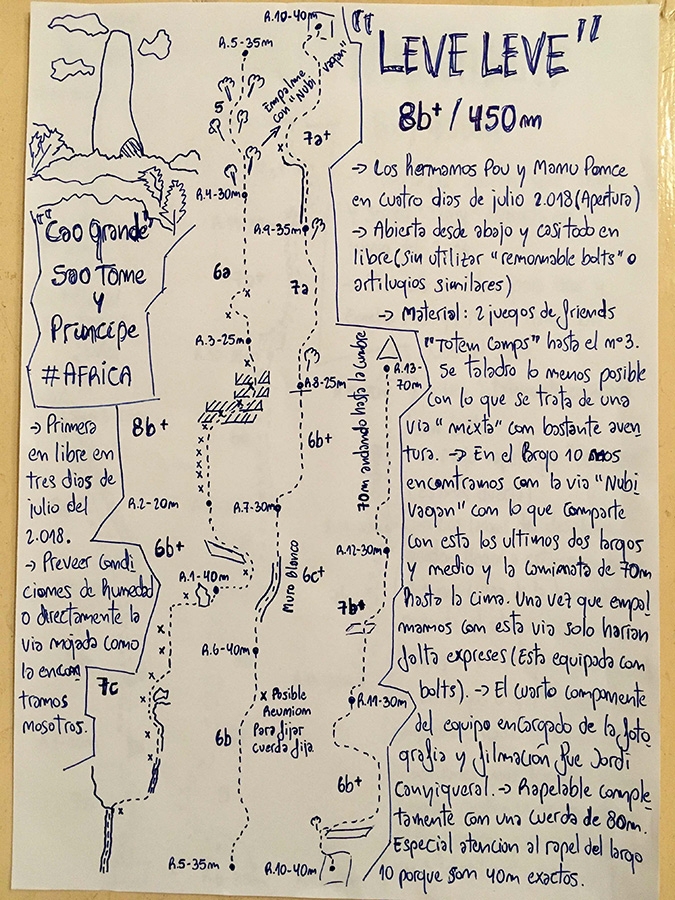 "LEVE LEVE"
8b+ / 450m
→ Los hermanos Pou y Manu Ponce
en cuatro dias de julio 2.018 (Apertura)
→ Abierta desde abajo y casi todo en
libre (sin utilizar "removnable bolts" o
artilugios similares)
→ Material: 2 juegos de friends
"Totem camps" hasta el nº3.
Se taladro lo menos posible
con lo que se trata de una
via "mixta" con bastante aven
tura. → En el largo 10 nos
encontramos con la via "Nubi
vagan" con lo que comparte
con esta los ultimos dos largos
y medio y la caminata de 70m
hasta la cima. Una vez que empal
mamos con esta via solo harian
falta expreses (Esta equipada con
bolts). → El cuarto componente
del equipo encargado de la foto
grafia y filmación fue Jordi
Canyigueral. → Rapelable comple
tamente con una cuerda de 80m.
Especial atencion al rapel del largo
10 porque son 40m exactos.
"Cao Grande"
Sao Tome
y
Principe
#AFRICA
→ Primera
en libre en
tres dias de
julio del
2.018.
→ Preveer condi
ciones de humedad
o directamente la
via mojada como
la encon
tramos
nosotros.
R.5-35m
5
R.4-30m
6a
R.3-25m
8b+
R.2-20m
6b+
R.1-40m
7c
R.10-40m
Empalme
con "Nubi
vagan"
7a+
R.9-35m
7a
R.8-25m
6b+
R.7-30m
Muro Blanco
6c+
R.6-40m
x Posible
Reunion
Para fijar
cuerda fija
6b
R.5-35m
70m andando hasta la cumbre
R.13-
70m
R.12-30m
7b+
R.11-30m
6b+
R.10-40m